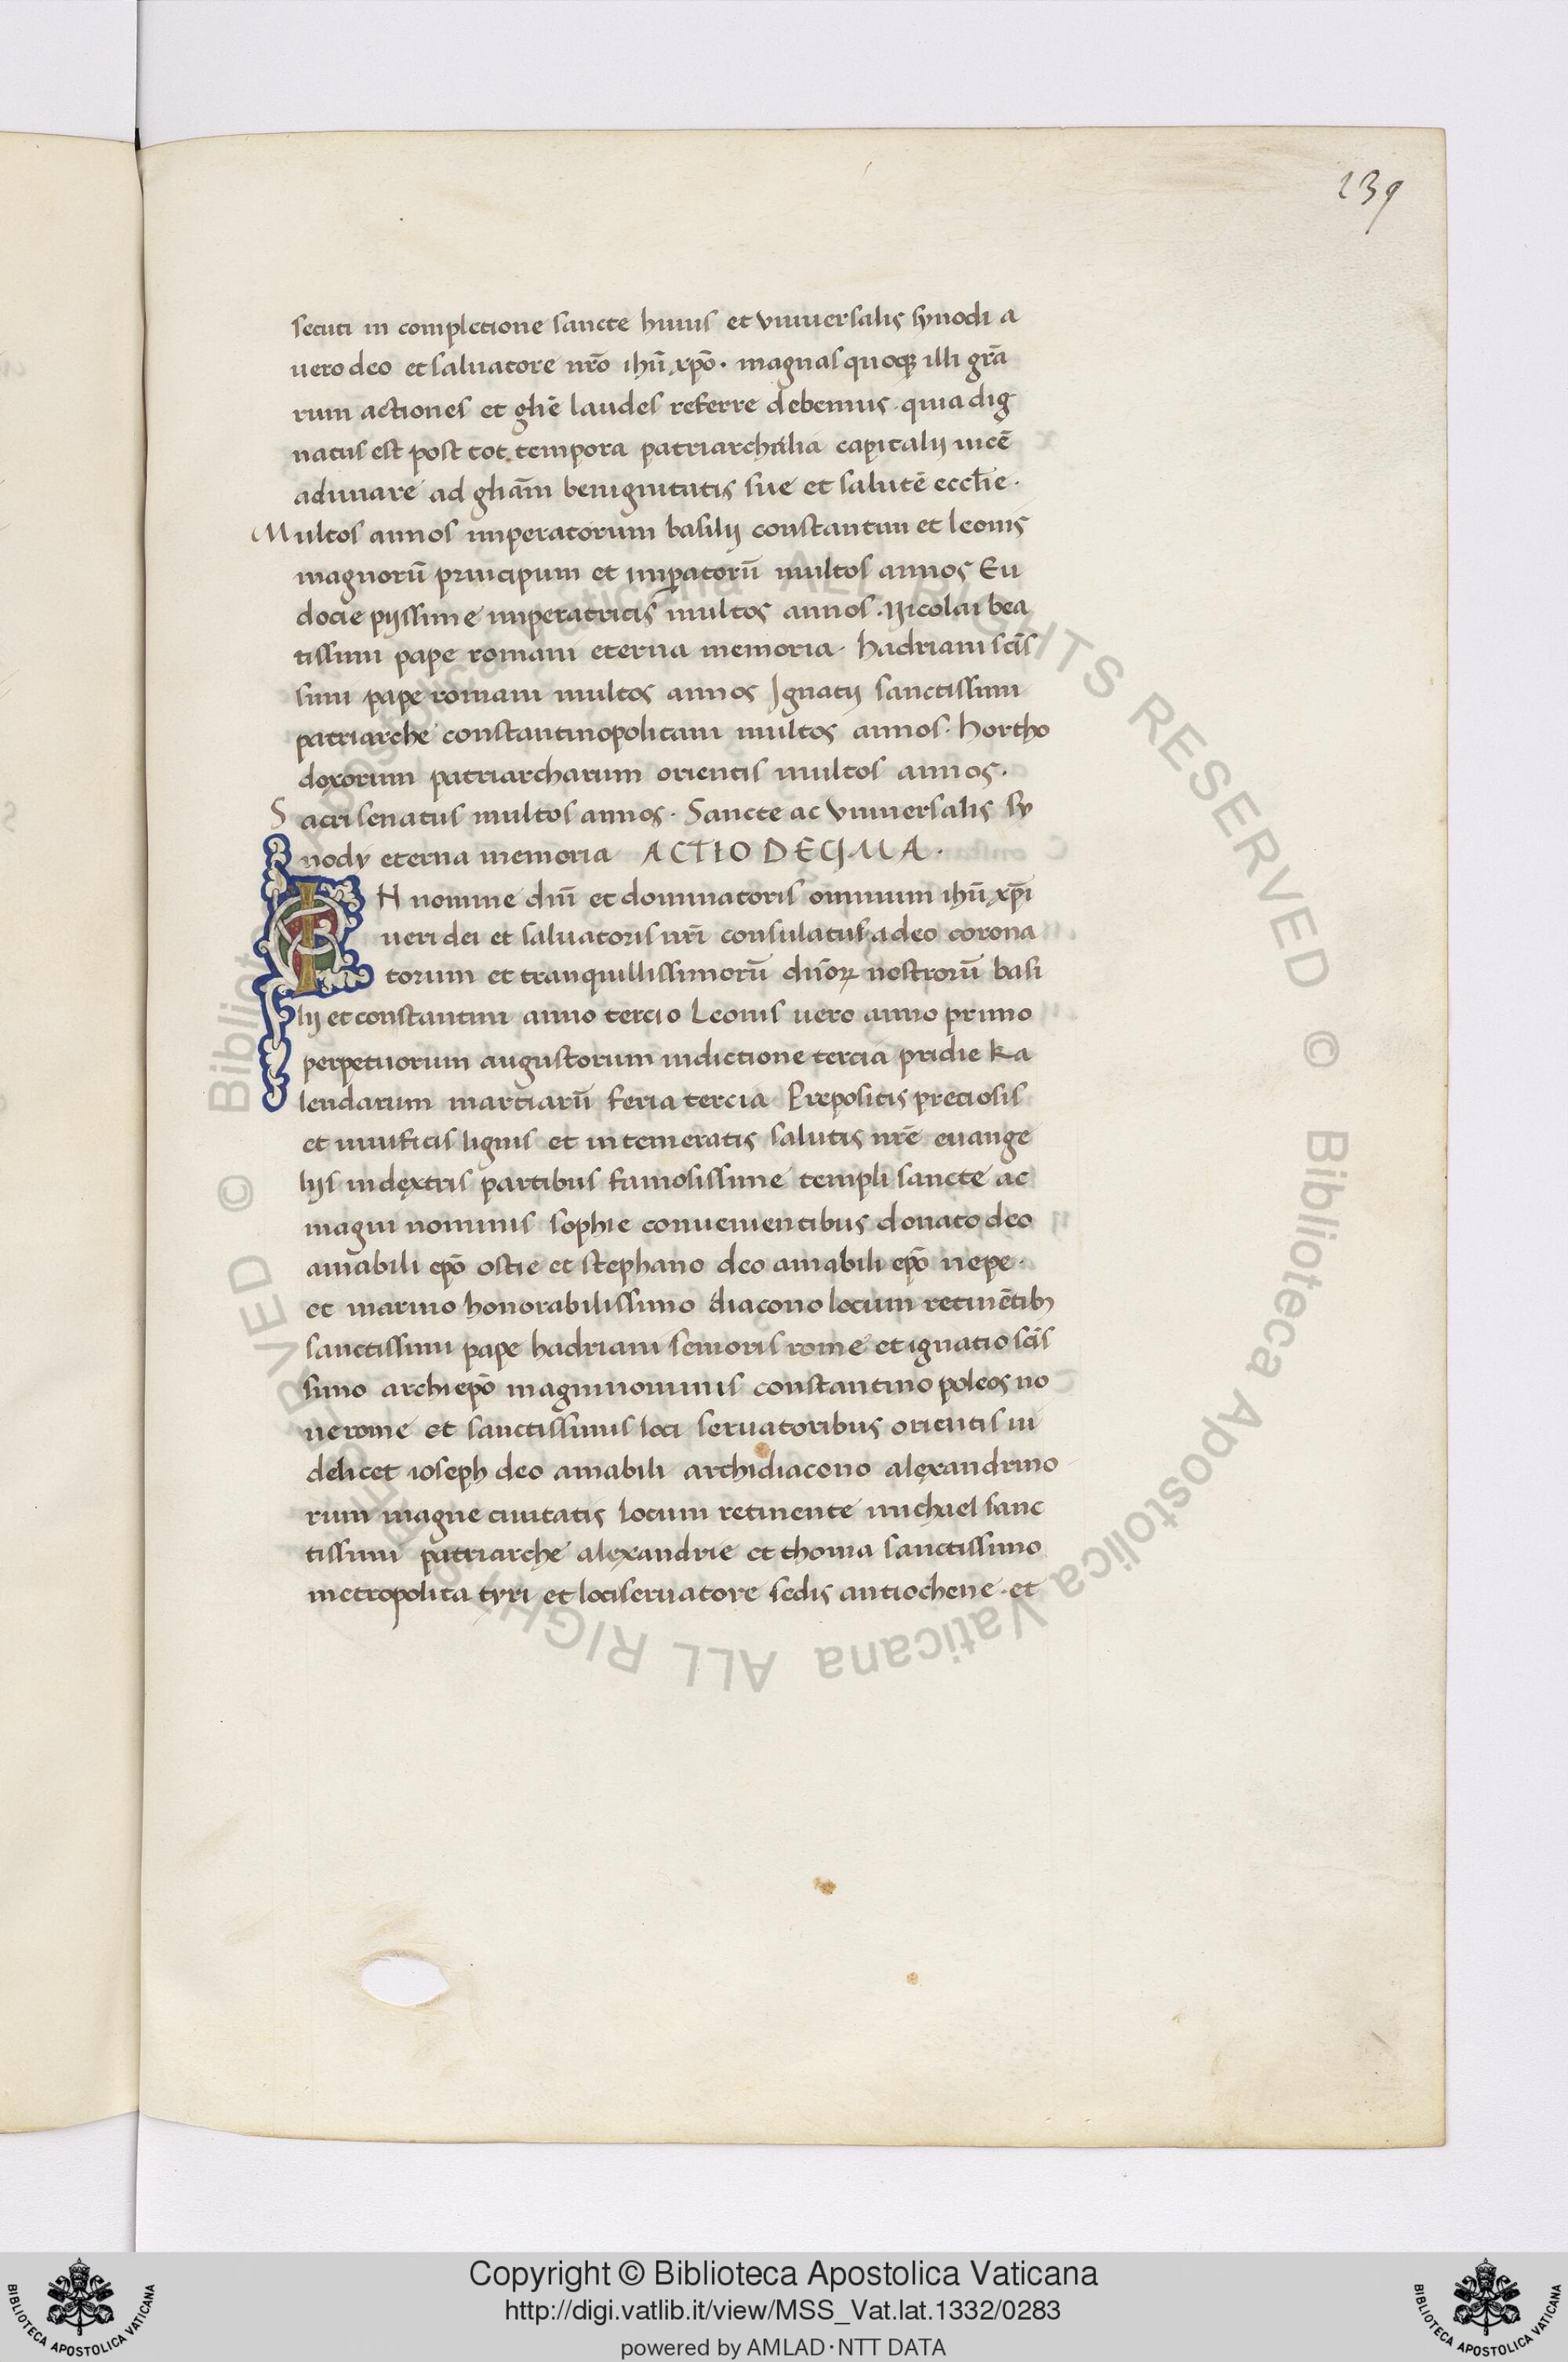 239
secuti in completione sancte huius et vniuersalis synodi a
uero deo et saluatore nr̄o ihū xp̄o. magnas quoqꝫ illi gr̄a
rum actiones et głie laudes referre debemus. quia dig
natus est post tot tempora patriarchalia capitalij uicē
adunare ad głiam benignitatis sue et salutē eccłie.
Multos annos imperatorum basilij constantini et leonis
magnorū principum et imꝑatorū multos annos Eu
docie pijssime imperatricis multos annos. Nicolai bea
tissimi pape romani eterna memoria. hadriani scīs
simi pape romani multos annos Ignatij sanctissimi
patriarche constantinopolitani multos annos. hortho
doxorum patriarcharum orientis multos annos.
Sacri senatus multos annos. Sancte ac vniuersalis sy
nody eterna memoria ACTIO DECIMA.
IN nomine dn̄i et dominatoris omnium ihū xp̄i
ueri dei et saluatoris nr̄i consulatus a deo corona
torum et tranquillissimorū dn̄oꝝ nostrorū basi
lij et constantini anno tercio Leonis uero anno primo
perpetuorum augustorum indictione tercia pridie Ka
lendarum martiarū feria tercia Prepositis preciosis
et uiuificis lignis et intemeratis salutis nr̄e euange
lijs in dextris partibus famosissime templi sancte ac
magni nominis sophie conuenientibus donato deo
amabili ep̄o ostie et stephano deo amabili ep̄o nepe.
et marino honorabilissimo diacono locum retinētibꝫ
sanctissimi pape hadriani senioris rome et ignatio scīs
simo archiep̄o magni nominis constantinopoleos no
ue rome et sanctissimis loci seruatoribus orientis ui
delicet ioseph deo amabili archidiacono alexandrino
rum magne ciuitatis locum retinente michael sanc
tissimi patriarche alexandrie et thoma sanctissimo
metropolita tyri et lociseruatore sedis antiochene. et
© Biblioteca Apostolica Vaticana ALL RIGHTS RESERVED
© Biblioteca Apostolica Vaticana ALL RIGHTS RESERVED
Copyright © Biblioteca Apostolica Vaticana
http://digi.vatlib.it/view/MSS_Vat.lat.1332/0283
powered by AMLAD·NTT DATA
BIBLIOTECA APOSTOLICA VATICANA
BIBLIOTECA APOSTOLICA VATICANA